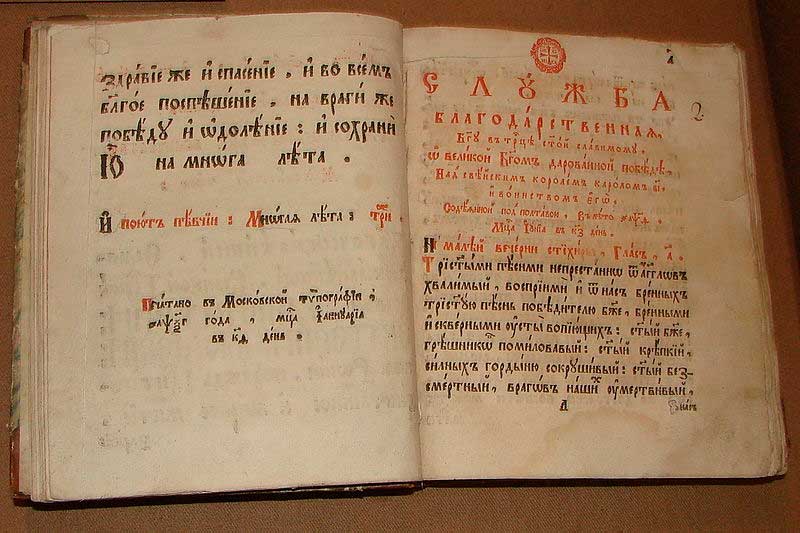 здравїе же и спасенїе, и во всемъ
бл҃гое поспѣшенїе, на враги же
побѣду и ѡдолѣнїе: и сохрани
ю̀ на мнѡга лѣта.
И поютъ пѣвчїи: Мнѡгая лѣта: три.
Печатано въ Московской тѵпографїи,
года, мц҃а їаннуарїа
въ к҃д день.
2
СЛУЖБА
БЛАГОДАРСТВЕННАЯ,
Бг҃у въ трⷪ҇цѣ ст҃ой славимому,
ѡ великой Бг҃омъ дарованной побѣдѣ,
Над свейскимъ королемъ каролѡмъ в҃і
и воинствомъ егѡ,
Содѣянной под полтавою, въ лѣто ҂аѱ҃ѳ
Мц҃а їунїа въ к҃з день.
На малѣй вечерни стїхиры, гласъ, а҃.
Трїст҃ыми пѣсньми непрестаннѡ ѿ агг҃лѡвъ
хвалимый, воспрїими и ѿ насъ бренныхъ
трїст҃ую пѣснь побѣдителю бж҃е, бренными
и скверными оусты вопїющихъ: ст҃ый бж҃е,
грѣшникѡтъ помиловавый: ст҃ый крѣпкїй,
силныхъ гордыню сокрушивый: ст҃ый без-
смертный, врагѡвъ нашиⷯ оумертвивый,
А